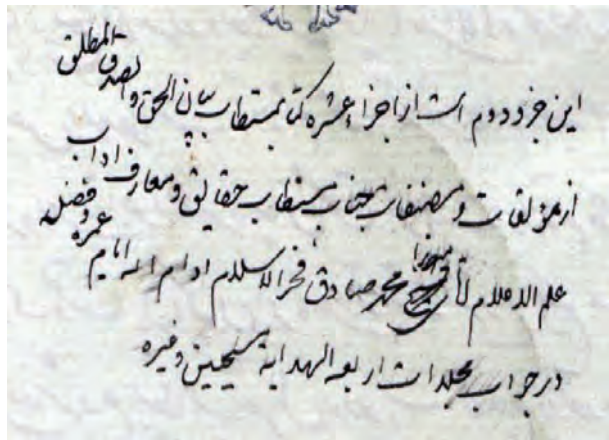 این جزو دوم است از اجزاء عشره کتاب مستطاب بیان الحق والصدق المطلق
از مؤلفات و مصنفات جناب مستطاب حقایق و معارف اداب
علم الاعلام میرزا محمد صادق فخر الاسلام ادام الله ایام عمره و فضله
در جواب مجلدات اربعه الهدایة مسیحیین وغیره